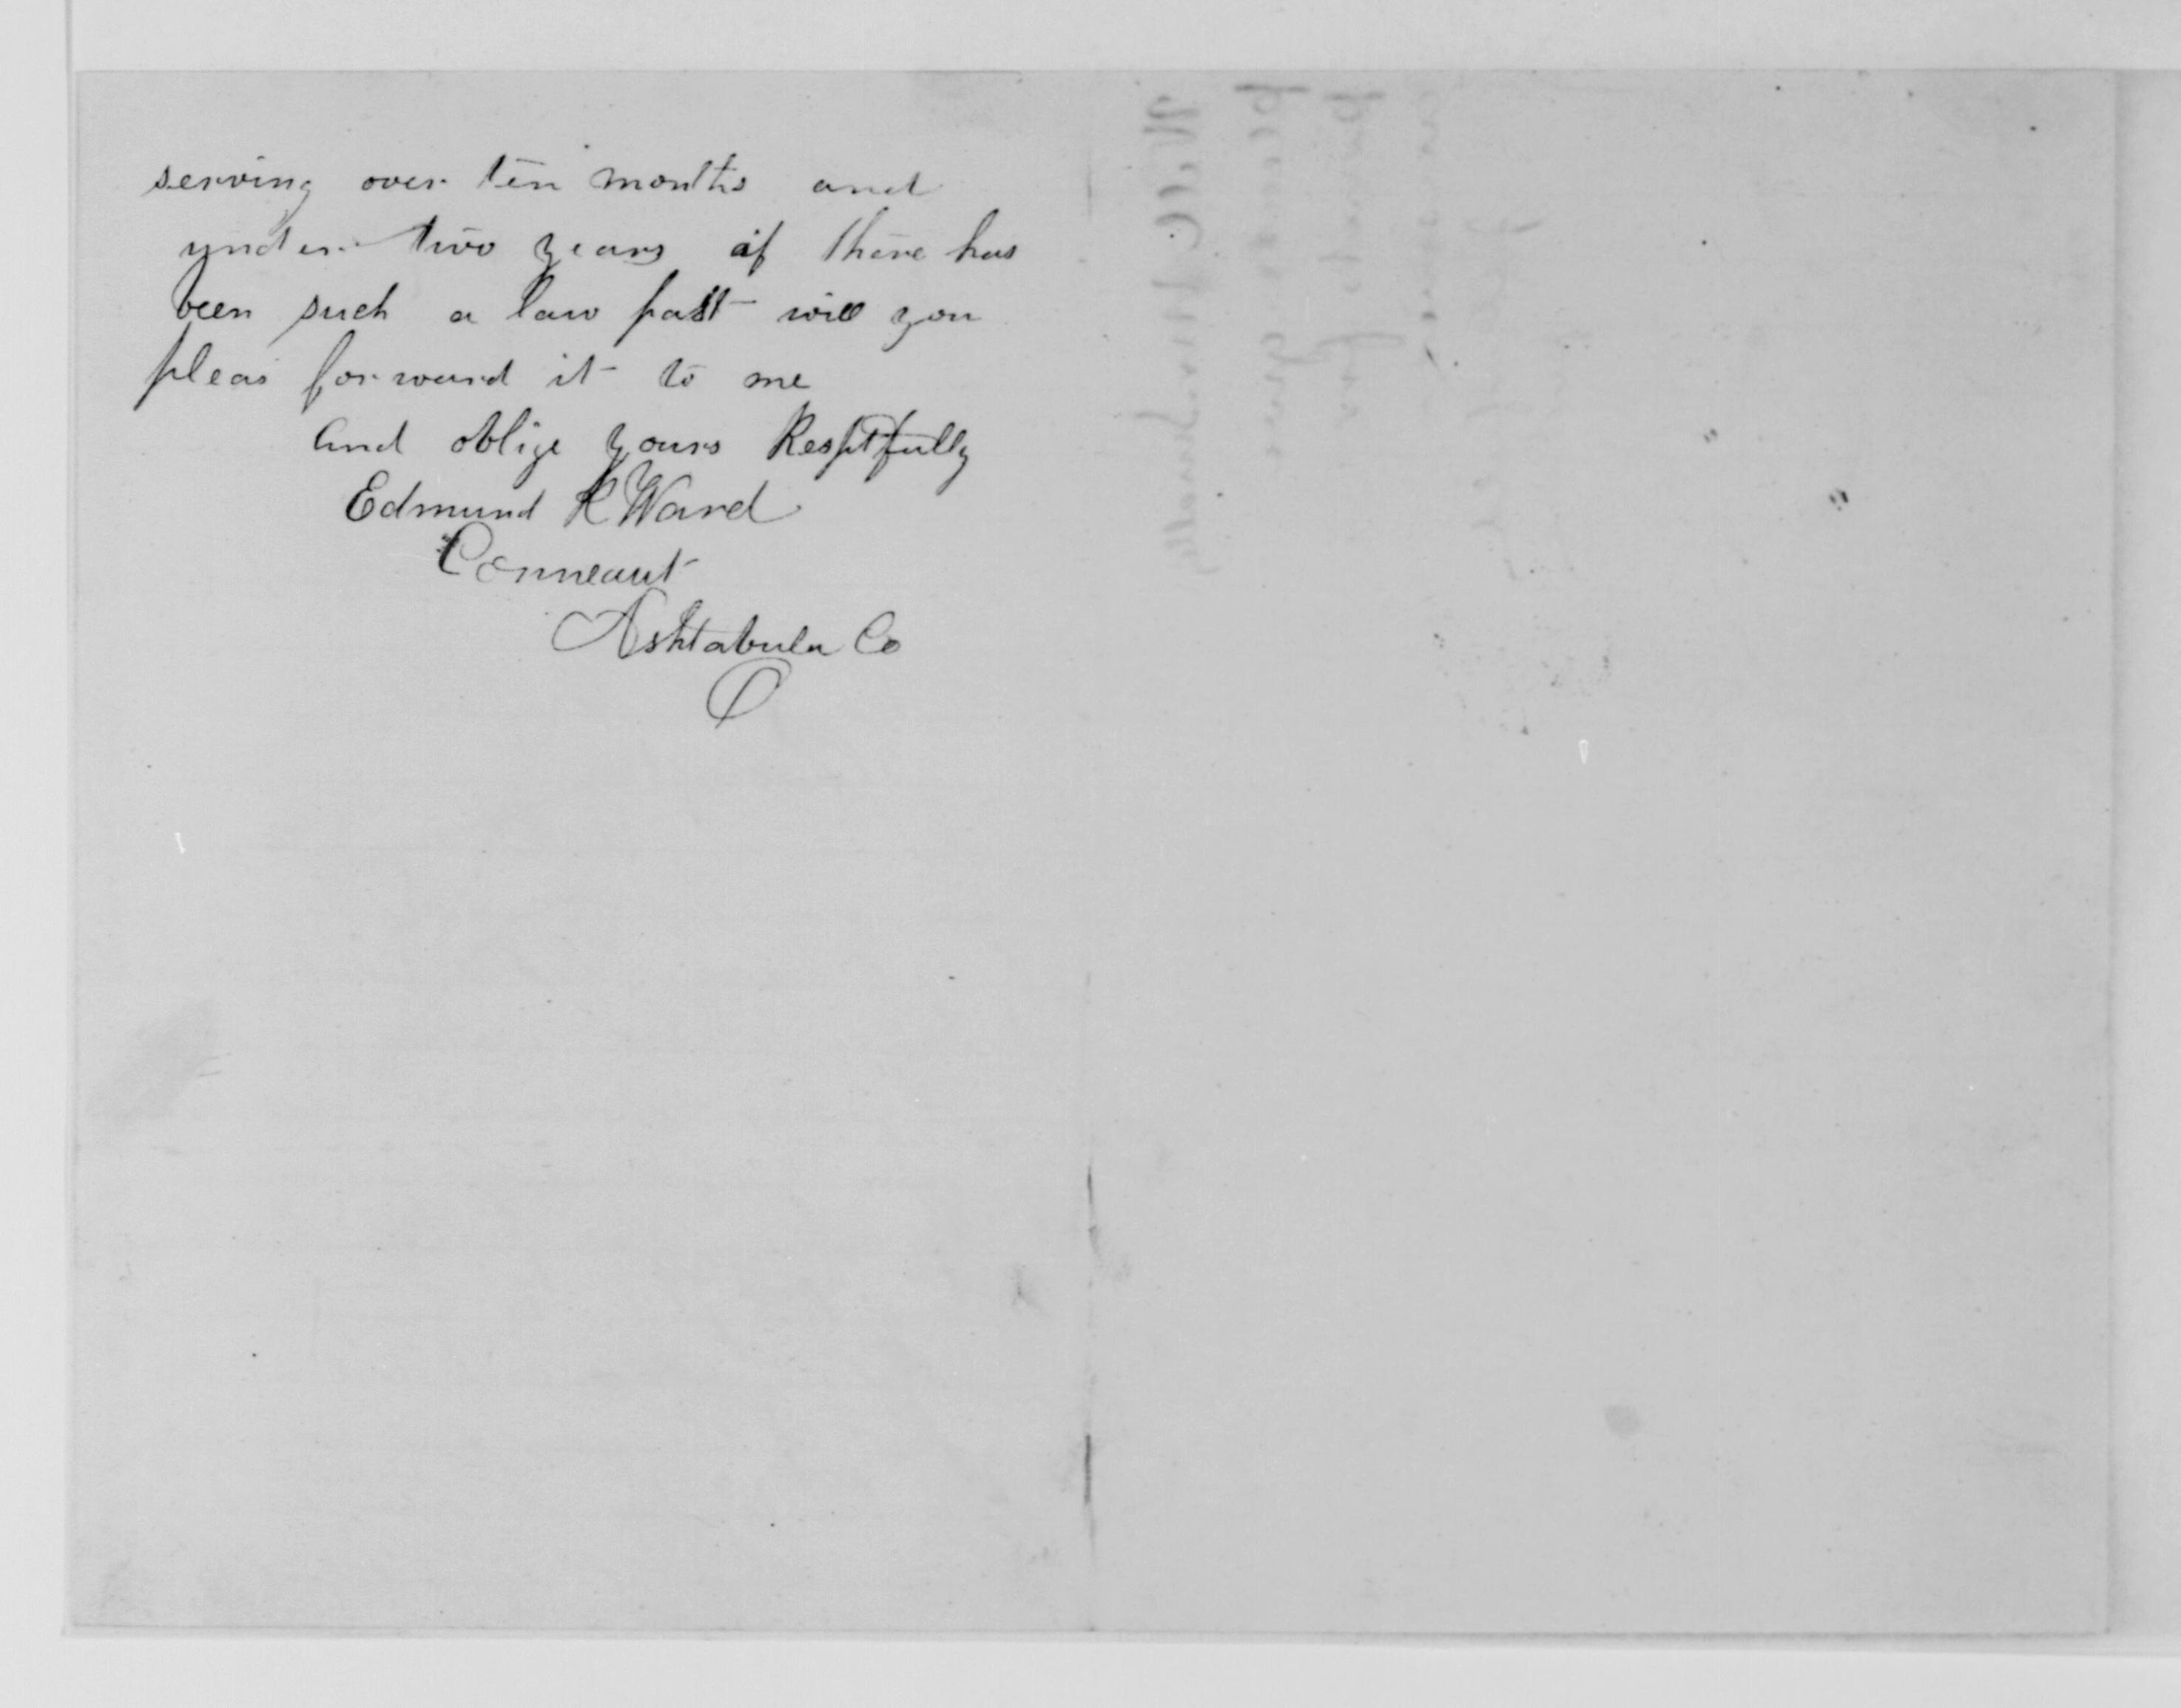 serving over ten months and
under two years if there has
been such a law past will you
pleas forward it to me
and oblige yours Resptfully
Edmund R Ward
Conneaut
Ashtabula Co
O